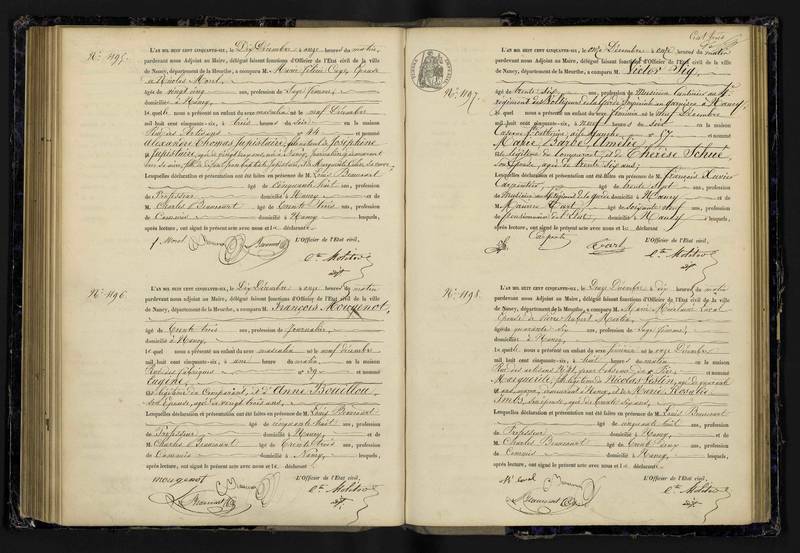 Nº. 1195.
L'AN MIL HUIT CENT CINQUANTE-SIX, le Dix Décembre à onze heures du matin,
pardevant nous Adjoint au Maire, délégué faisant fonctions d'Officier de l'Etat civil de la ville
de Nancy, département de la Meurthe, a comparu M. Marie Félicie Cuny, Epouse
de Nicolas Morel,
âgée de vingt cinq ans, profession de Sage femme,
domiciliée à Nancy,
laquelle nous a présenté un enfant du sexe masculin né le neuf Décembre
mil huit cent cinquante-six, à trois heures du Soir en la maison
Rue des Artisans nº 44 et nommé
Alexandre Thomas Jupistaire, fils naturel de Joséphine
Jupistaire,
Lesquelles déclaration et présentation ont été faites en présence de M. Louis Beausart
âgé de Cinquante huit ans, profession
de Professeur domicilié à Nancy et de
M. Charles Beausart âgé de Trente trois ans, profession
de Commis domicilié à Nancy lesquels,
après lecture, ont signé le présent acte avec nous et le déclarant
f. Morel
L'Officier de l'Etat civil,
Cte. Molitor
adjt.
Nº. 1196.
L'AN MIL HUIT CENT CINQUANTE-SIX, le Dix Décembre à onze heures du matin
pardevant nous Adjoint au Maire, délégué faisant fonctions d'Officier de l'Etat civil de la ville
de Nancy, département de la Meurthe, a comparu M. François Mougenot,
âgé de Trente trois ans, profession de Journalier,
domicilié à Nancy,
lequel nous a présenté un enfant du sexe masculin né le neuf décembre
mil huit cent cinquante-six, à une heure du matin en la maison
Rue des fabriques nº 39 et nommé
Eugène,
fils légitime du Comparant, et d'Anne Bouillou,
son Epouse, âgée de vingt trois ans,
Lesquelles déclaration et présentation ont été faites en présence de M. Louis Beausart
âgé de cinquante huit ans, profession
de Professeur domicilié à Nancy, et de
M. Charles Beausart âgé de Trente trois ans, profession
de Commis domicilié à Nancy, lesquels,
après lecture, ont signé le présent acte avec nous et le déclarant
mougenot
L'Officier de l'Etat civil,
Cte. Molitor
adjt.
Nº. 1197.
L'AN MIL HUIT CENT CINQUANTE-SIX, le onze Décembre à onze heures du matin
pardevant nous Adjoint au Maire, délégué faisant fonctions d'Officier de l'Etat civil de la ville
de Nancy, département de la Meurthe, a comparu M. Victor Sig,
âgé de trente six ans, profession de Musicien
régiment des Voltigeurs de la garde Impériale en garnison à Nancy,
lequel nous a présenté un enfant du sexe féminin né le neuf Décembre
mil huit cent cinquante-six, à neuf heures du Soir en la maison
Caserne Ste. Catherine, aile gauche nº 57 et nommé
Marie Barbe Amélie,
fille légitime du Comparant, et de Thérèse Schué,
son Epouse, âgée de trente six ans,
Lesquelles déclaration et présentation ont été faites en présence de M. François Xavier
Carpentier, âgé de trente sept ans, profession
de Musicien domicilié à Nancy, et de
M. âgé de soixante neuf ans, profession
de pensionnaire de l'Etat, domicilié à Nancy, lesquels,
après lecture, ont signé le présent acte avec nous et le déclarant
L'Officier de l'Etat civil,
Cte. Molitor
adjt.
Nº. 1198.
L'AN MIL HUIT CENT CINQUANTE-SIX, le Douze Décembre à Dix heures du matin
pardevant nous Adjoint au Maire, délégué faisant fonctions d'Officier de l'Etat civil de la ville
de Nancy, département de la Meurthe, a comparu M.
âgée de quarante six ans, profession de Sage femme,
domiciliée à Nancy,
laquelle nous a présenté un enfant du sexe féminin né le onze Décembre
mil huit cent cinquante-six, à huit heures du matin en la maison
Rue des artisans et nommé
fille légitime de Nicolas
et de Marie Rosalie
son épouse, âgée de trente six ans,
Lesquelles déclaration et présentation ont été faites en présence de M. Louis Beausart
âgé de cinquante huit ans, profession
de Professeur domicilié à Nancy, et de
M. Charles Beausart âgé de Trente trois ans, profession
de Commis domicilié à Nancy, lesquels,
après lecture, ont signé le présent acte avec nous et le déclarant
L'Officier de l'Etat civil,
Cte. Molitor
adjt.